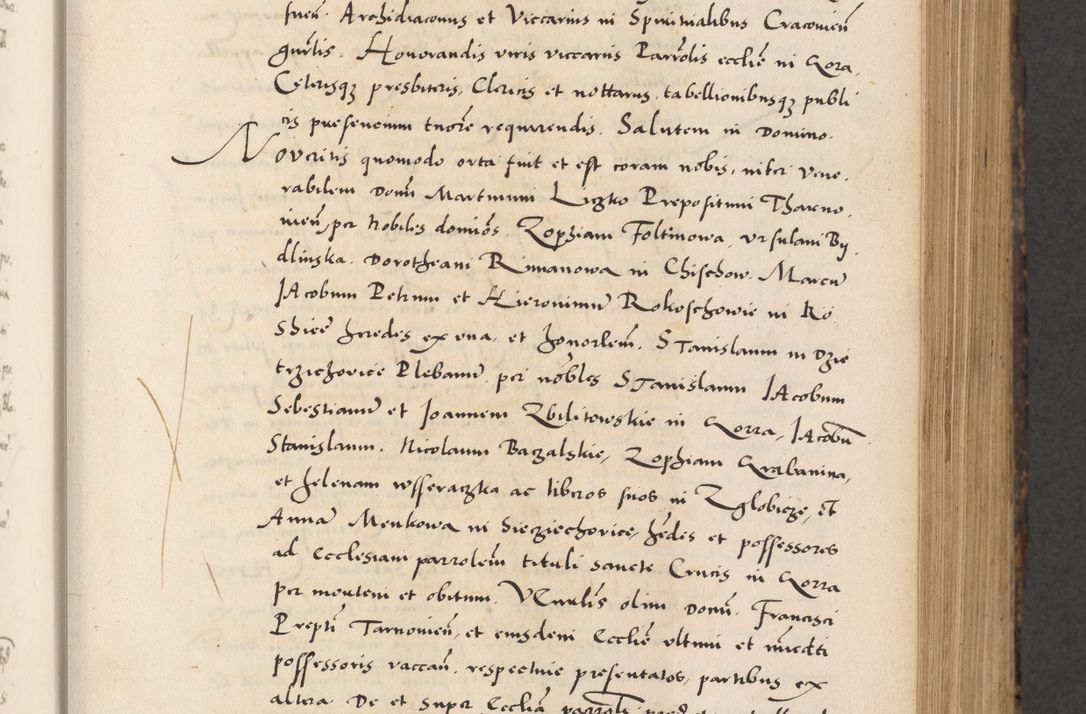 suen̄. Archidiaconus et Viccarius in Spiritualibus Cracovien̄
gn̄rlis. Honorandis viris viccariis Parrōlis ecclīe in Gora,
Ceterisqꝫ presbiteris, Clericis et nottariis, tabellionibusqꝫ publi
cis presencium tenōre requirendis. Salutem in Domino.
Noveritis quomodo orta fuit et est coram nobis, inter Vene-
rabilem Domn̄ Martinum Liczko Prepositum Tharno-
vien̄, per Nobiles dominōs Zophiam Foltinowa, Ursulam By
dlinska. Dorotheam Rimanowa in Chischow. Marcū
Jacobum Petrum et Hieronimū Rokoschowie in Ko
shice heredes ex una, et honorlem̄. Stanislaum in Dzie
trzichovice Plebanū. per nōbles Stanislaum Jacobum
Sebestianū et Joannem Zbilitowskie in Gorra, Jacobū
Stanislaum. Nicolaum Baczalskie, Zophiam Grabanina,
et helenam wsseraczka ac liberos suos in Zglobicze, et
Annā Menkowa in Sieciechovice, hēdes et possessores
ad Ecclesiam parrolem̄ tituli sancte Crucis in Gorra
per mortem et obitum. Venrlis̄ olim Domn̄. Francisci
Prepti Tarnovien̄, et eiusdem Ecclīe ultimi et imēdti
possessoris vaccan̄. respective presentatos, partibus ex
altera. De et super Ecclīa parrōli